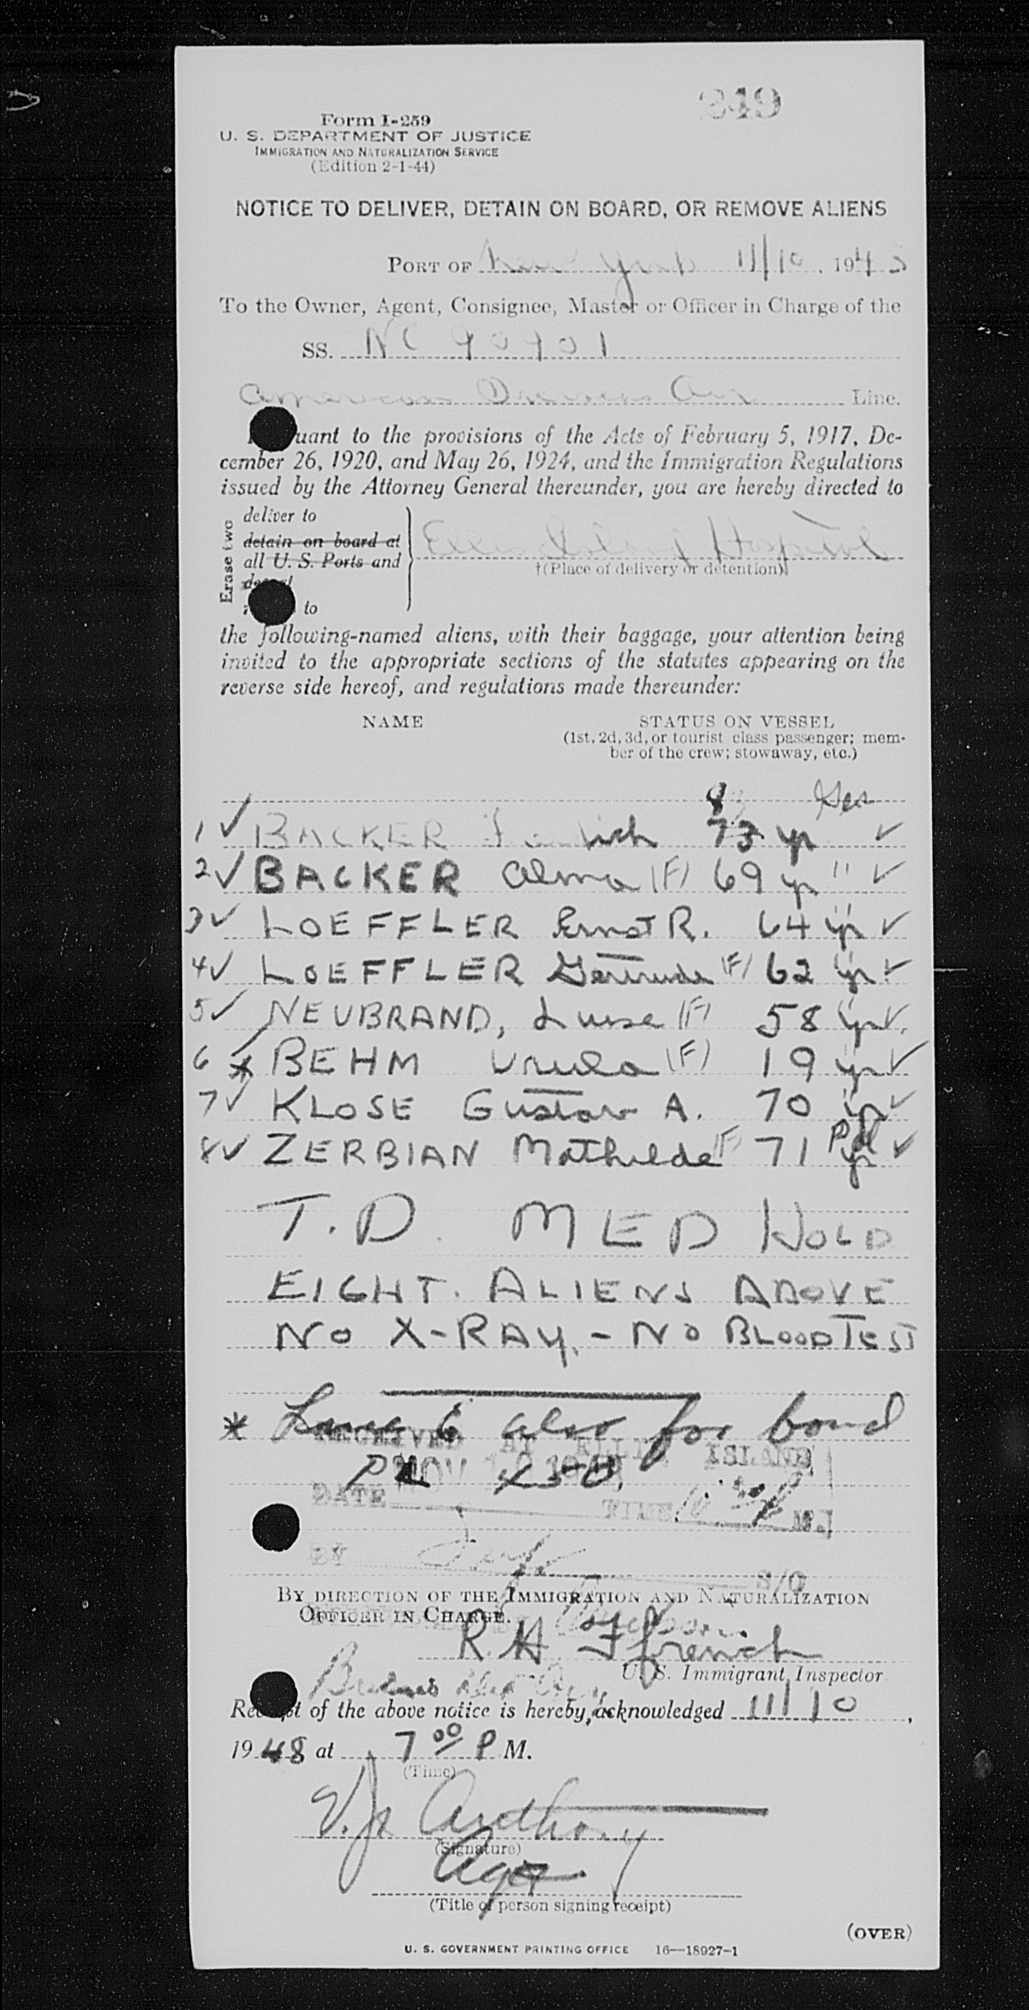 249
Form I-259
U. S. DEPARTMENT OF JUSTICE
IMMIGRATION AND NATURALIZATION SERVICE
(Edition 2-1-44)
NOTICE TO DELIVER, DETAIN ON BOARD, OR REMOVE ALIENS
PORT OF New York 11/10, 1948
To the Owner, Agent, Consignee, Master or Officer in Charge of the
SS. NC 90901
American Overseas Air Line.
uant to the provisions of the Acts of February 5, 1917, De-
cember 26, 1920, and May 26, 1924, and the Immigration Regulations
issued by the Attorney General thereunder, you are hereby directed to
Erase two
deliver to
detain on board at
all U. S. Ports and
to
Ellis Island Hospital
†(Place of delivery or detention)
the following-named aliens, with their baggage, your attention being
invited to the appropriate sections of the statutes appearing on the
reverse side hereof, and regulations made thereunder:
NAME STATUS ON VESSEL
(1st, 2d, 3d, or tourist class passenger; mem-
ber of the crew; stowaway, etc.)
1 ✓ BACKER 73 yr ✓
2 ✓ BACKER Alma (F) 69 yr " ✓
3 ✓ LOEFFLER Ernst R. 64 yr " ✓
4 ✓ LOEFFLER Gertrude (F) 62 yr " ✓
5 ✓ NEUBRAND, Luise (F) 58 yr " ✓
6 * BEHM Ursula (F) 19 yr " ✓
7 ✓ KLOSE Gustav A. 70 yr " ✓
8 ✓ ZERBIAN Mathilde (F) 71 yr ✓
T.D. MED HOLD
EIGHT ALIENS ABOVE
NO X-RAY, - NO BLOOD TEST
* Line 6 also for bond
RECEIVED AT ELLIS ISLAND
NOV 10
DATE TIME M.
BY
S/O
BY DIRECTION OF THE IMMIGRATION AND NATURALIZATION
OFFICER IN CHARGE.
R H Ffrench
U. S. Immigrant Inspector
Receipt of the above notice is hereby acknowledged 11/10,
1948 at 7 00 P M.
(Time)
V. Jr Anthony
(Signature)
Agt
(Title of person signing receipt)
(OVER)
U. S. GOVERNMENT PRINTING OFFICE 16—18927-1